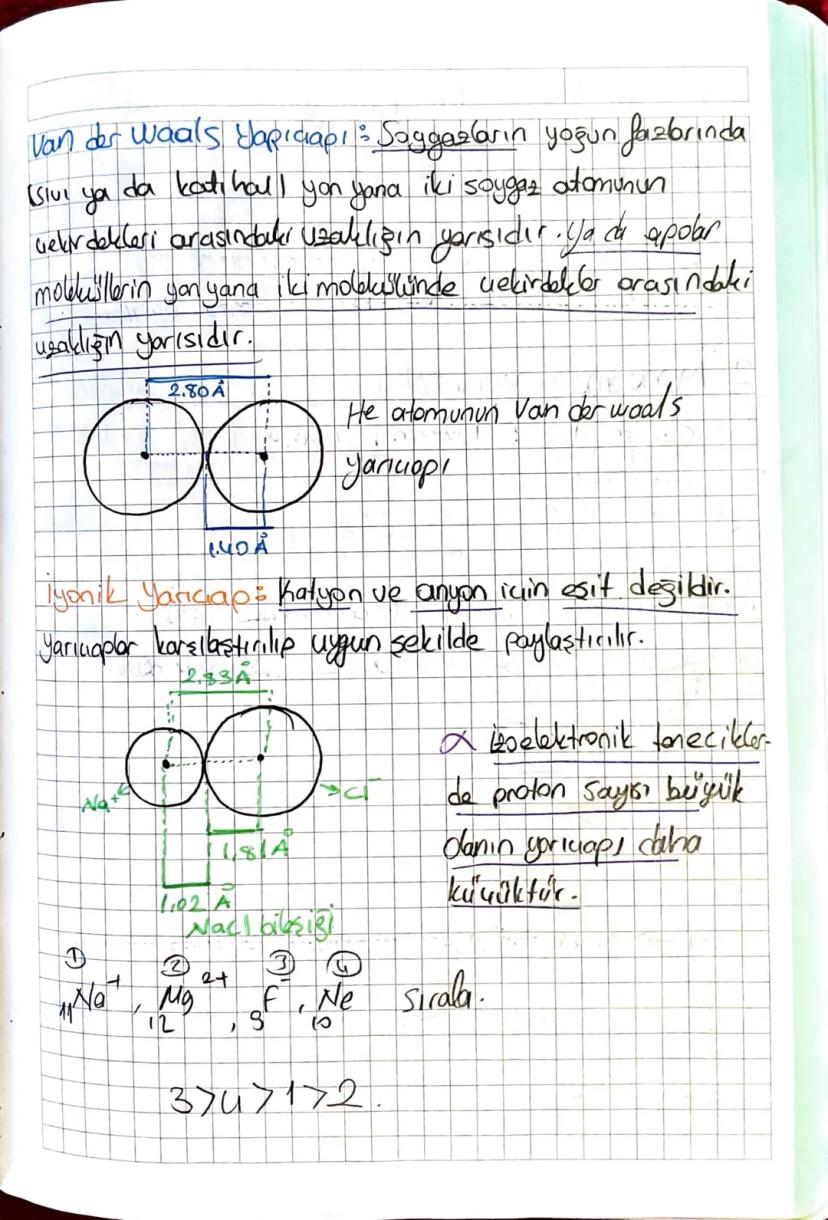 Van der Waals Yarıçapı: Soygazların yoğun fazlarında
(sıvı ya da katı hal) yan yana iki soygaz atomunun
çekirdekleri arasındaki uzaklığın yarısıdır. Ya da apolar
moleküllerin yan yana iki molekülünde çekirdekler arasındaki
uzaklığın yarısıdır.
2.80 Å
He atomunun Van der waals
yarıçapı
1.40 Å
İyonik Yarıçap: Katyon ve anyon için eşit değildir.
Yarıçaplar karşılaştırılıp uygun şekilde paylaştırılır.
2.83 Å
Na⁺
Cl⁻
1,81 Å
1,02 Å
NaCl bileşiği
İzoelektronik tanecikler-
de proton sayısı büyük
olanın yarıçapı daha
küçüktür.
① ② ③ ④
₁₁Na⁺, ₁₂Mg²⁺, ₉F⁻, ₁₀Ne sırala.
3>4>1>2.